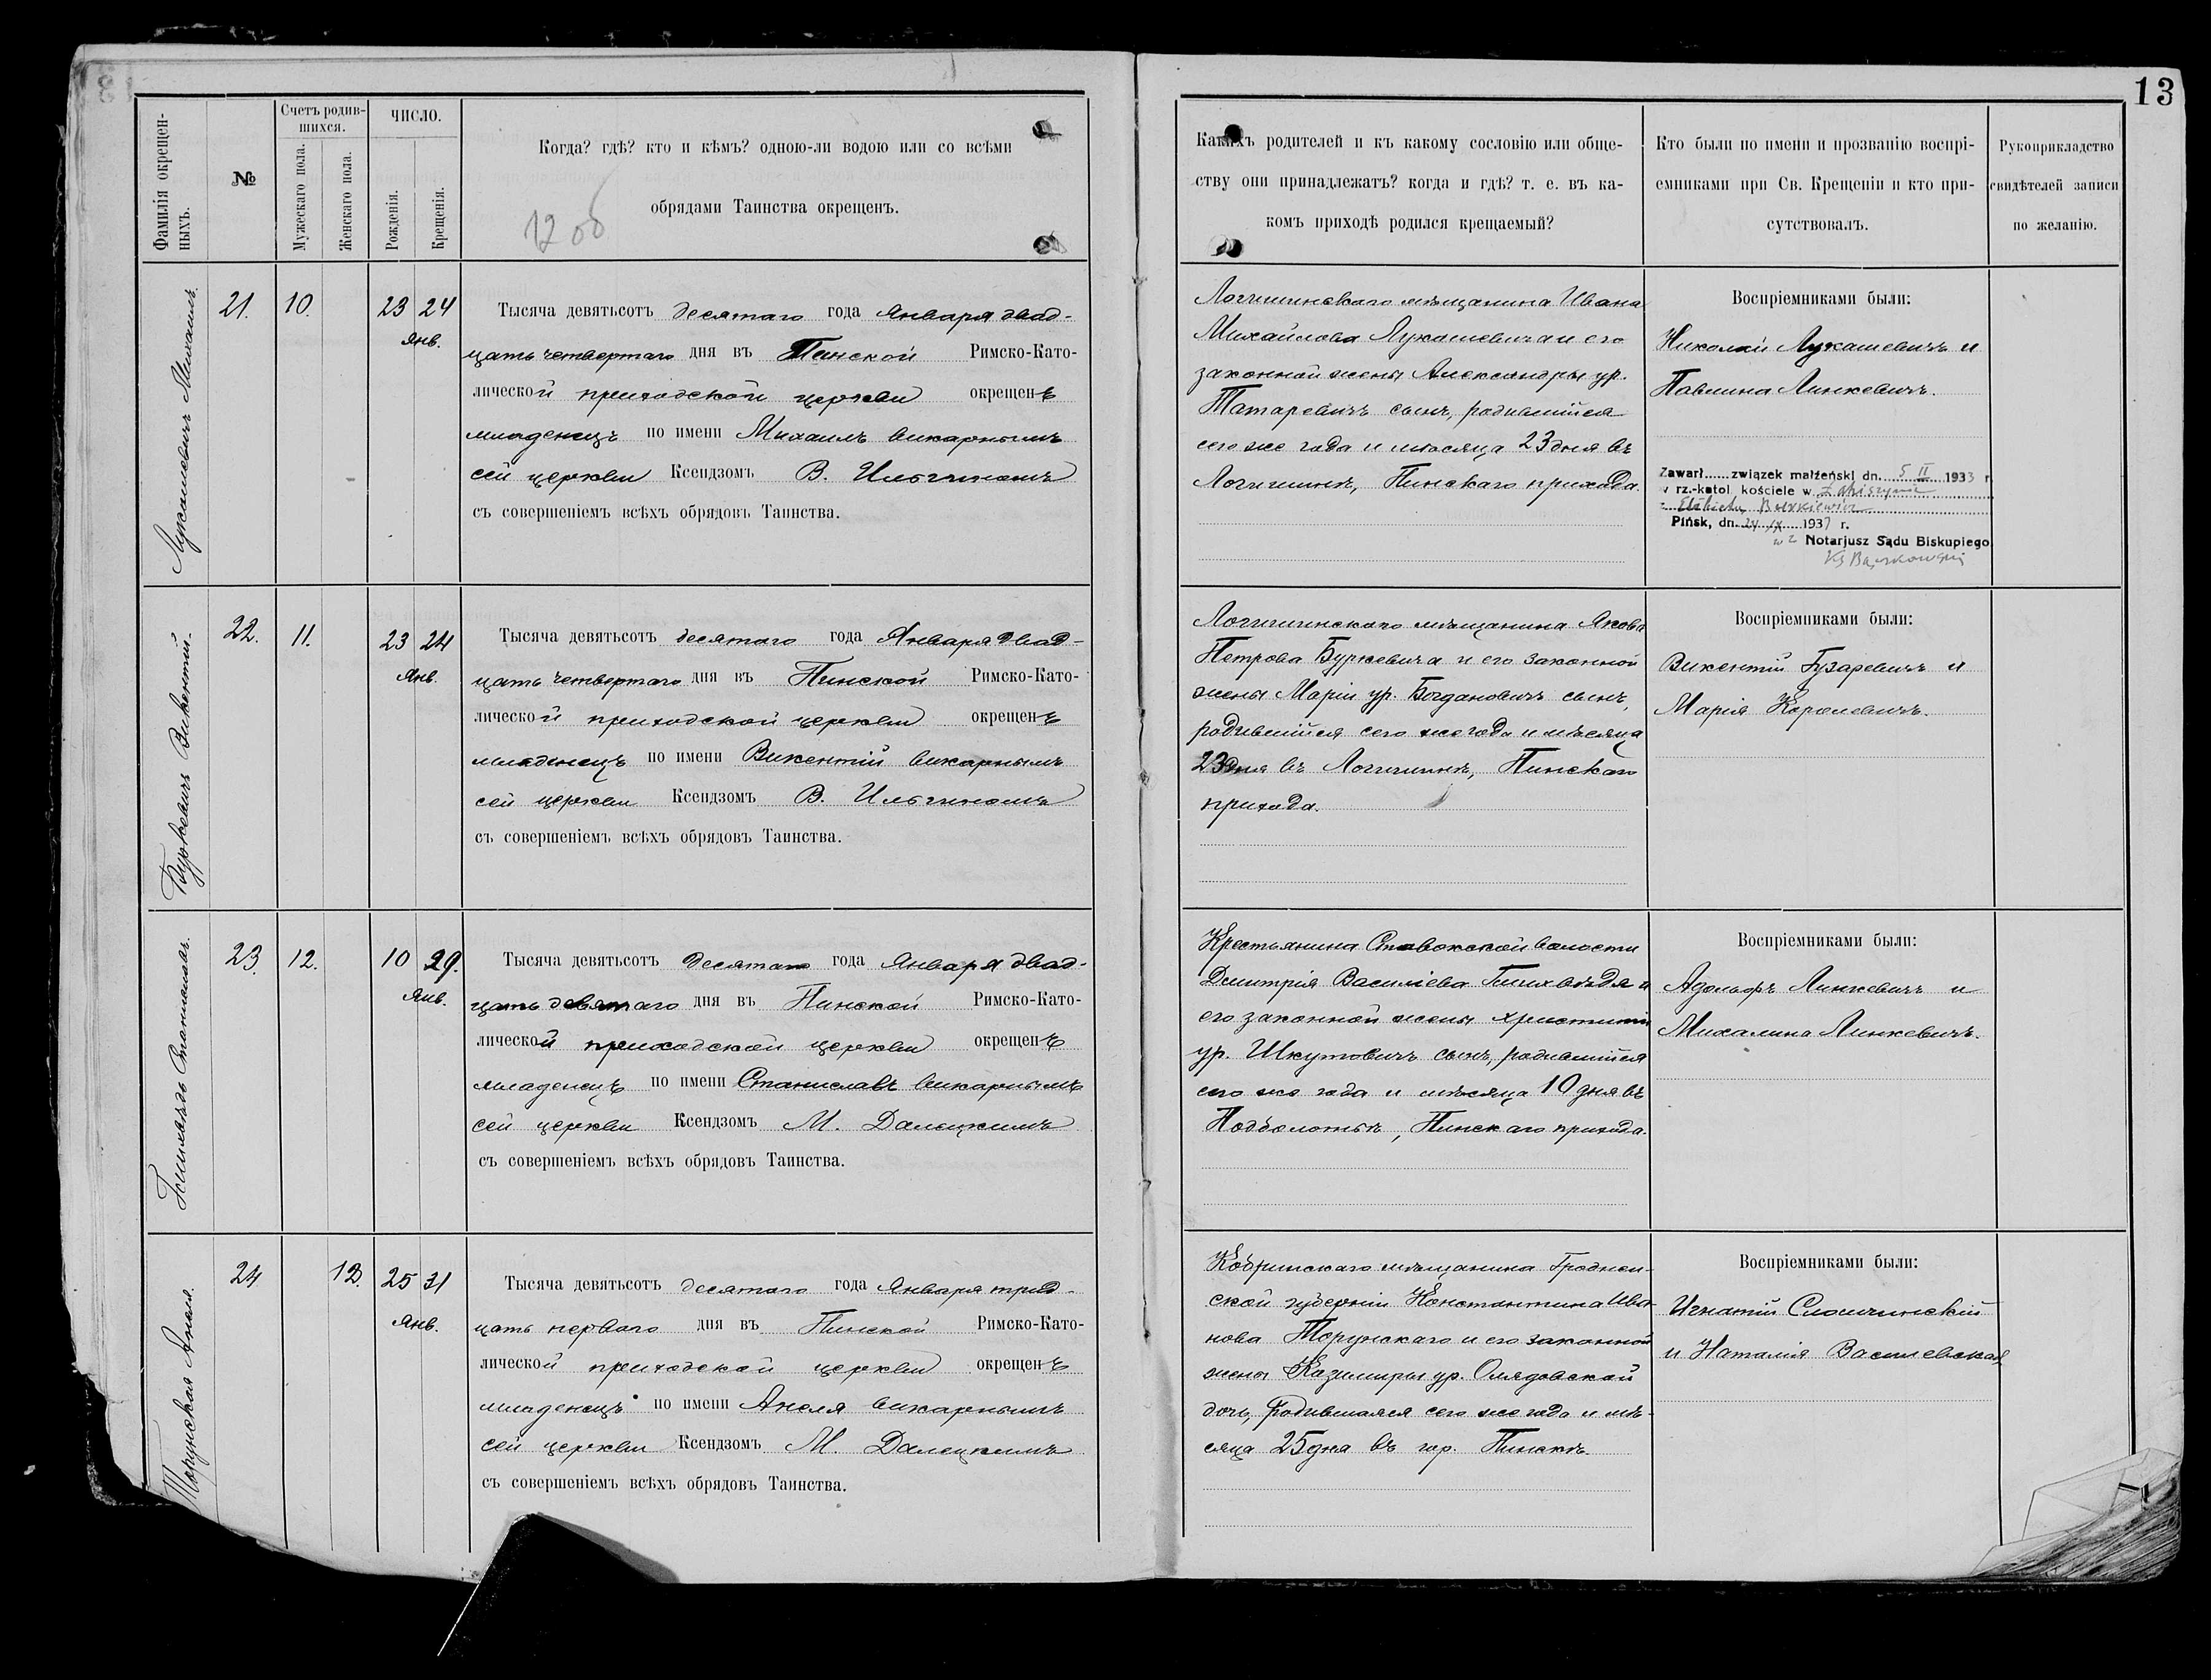 13
Фамилія окрещен-
ныхъ.
№
Счетъ родив-
шихся.
Мужескаго пола.
Женскаго пола.
ЧИСЛО.
Рожденія.
Крещенія.
Когда? гдѣ? кто и кѣмъ? одною-ли водою или со всѣми
обрядами Таинства окрещенъ.
1200
Какихъ родителей и къ какому сословію или обще-
ству они принадлежатъ? когда и гдѣ? т. е. въ ка-
комъ приходѣ родился крещаемый?
Кто были по имени и прозванію воспрі-
емниками при Св. Крещеніи и кто при-
сутствовалъ.
Рукоприкладство
свидѣтелей записи
по желанію.
Лукашевичъ Михаилъ.
21. 10. 23 24
Янв.
Тысяча девятьсотъ десятаго года Января двад-
цать четвертаго дня въ Пинской Римско-Като-
лической приходской церкви окрещенъ
младенецъ по имени Михаилъ викарнымъ
сей церкви Ксендзомъ В. Ильгиномъ
съ совершеніемъ всѣхъ обрядовъ Таинства.
Логишинскаго мѣщанина Ивана
Михайлова Лукашевича и его
законной жены Александры ур.
Татаревичъ сынъ, родившійся
сего же года и мѣсяца 23 дня въ
Логишинѣ, Пинскаго прихода.
Воспріемниками были:
Николай Лукашевичъ и
Павлина Линкевичъ.
Zawarł...... związek małżeński dn. 5 II 1933 r
w rz.-katol kościele w Łohiszynie
z Elżbietą
Pińsk, dn. 24/IX 1937 r.
wz Notarjusz Sądu Biskupiego
Буркевичъ Викентій.
22. 11. 23 24
Янв.
Тысяча девятьсотъ десятаго года Января двад-
цать четвертаго дня въ Пинской Римско-Като-
лической приходской церкви окрещенъ
младенецъ по имени Викентій викарнымъ
сей церкви Ксендзомъ В. Ильгиномъ
съ совершеніемъ всѣхъ обрядовъ Таинства.
Логишинскаго мѣщанина Якова
Петрова Буркевича и его законной
жены Маріи ур. Богдановичъ сынъ,
родившійся сего же года и мѣсяца
23 дня въ Логишинѣ, Пинскаго
прихода.
Воспріемниками были:
Викентій Гузаревичъ и
Марія Королевичъ.
Станиславъ.
23. 12. 10 29.
Янв.
Тысяча девятьсотъ десятаго года Января двад-
цать девятаго дня въ Пинской Римско-Като-
лической приходской церкви окрещенъ
младенецъ по имени Станиславъ викарнымъ
сей церкви Ксендзомъ М. Далецкимъ
съ совершеніемъ всѣхъ обрядовъ Таинства.
Крестьянина Ставокской волости
Дмитрія Василіева и
его законной жены Христины
ур. Шкутовичъ сынъ, родившійся
сего же года и мѣсяца 10 дня въ
Подболотьѣ, Пинскаго прихода.
Воспріемниками были:
Адольфъ Линкевичъ и
Михалина Линкевичъ.
Торунская Анеля.
24 12. 25 31
Янв.
Тысяча девятьсотъ десятаго года Января трид-
цать перваго дня въ Пинской Римско-Като-
лической приходской церкви окрещенъ
младенецъ по имени Анеля викарнымъ
сей церкви Ксендзомъ М. Далецкимъ
съ совершеніемъ всѣхъ обрядовъ Таинства.
Кобринскаго мѣщанина Гроднен-
ской губерніи Константина Ива-
нова Торунскаго и его законной
жены Казимиры ур. Олядовской
дочь, родившаяся сего же года и мѣ-
сяца 25 дня въ гор. Пинскѣ.
Воспріемниками были:
Игнатій Сломчинскій
и Наталія Василевская